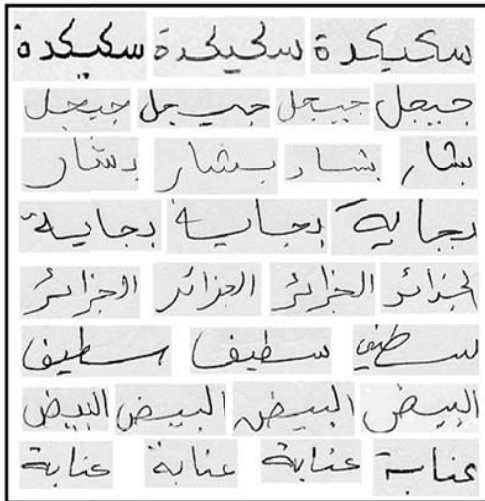 سكيكدة سكيكدة سكيكدة
جيجل جيجل جيجل جيجل
بشار بشار بشار بشار
بجاية بجاية بجاية
الجزائر الجزائر الجزائر الجزائر
سطيف سطيف سطيف
البيض البيض البيض البيض
عنابة عنابة عنابة عنابة